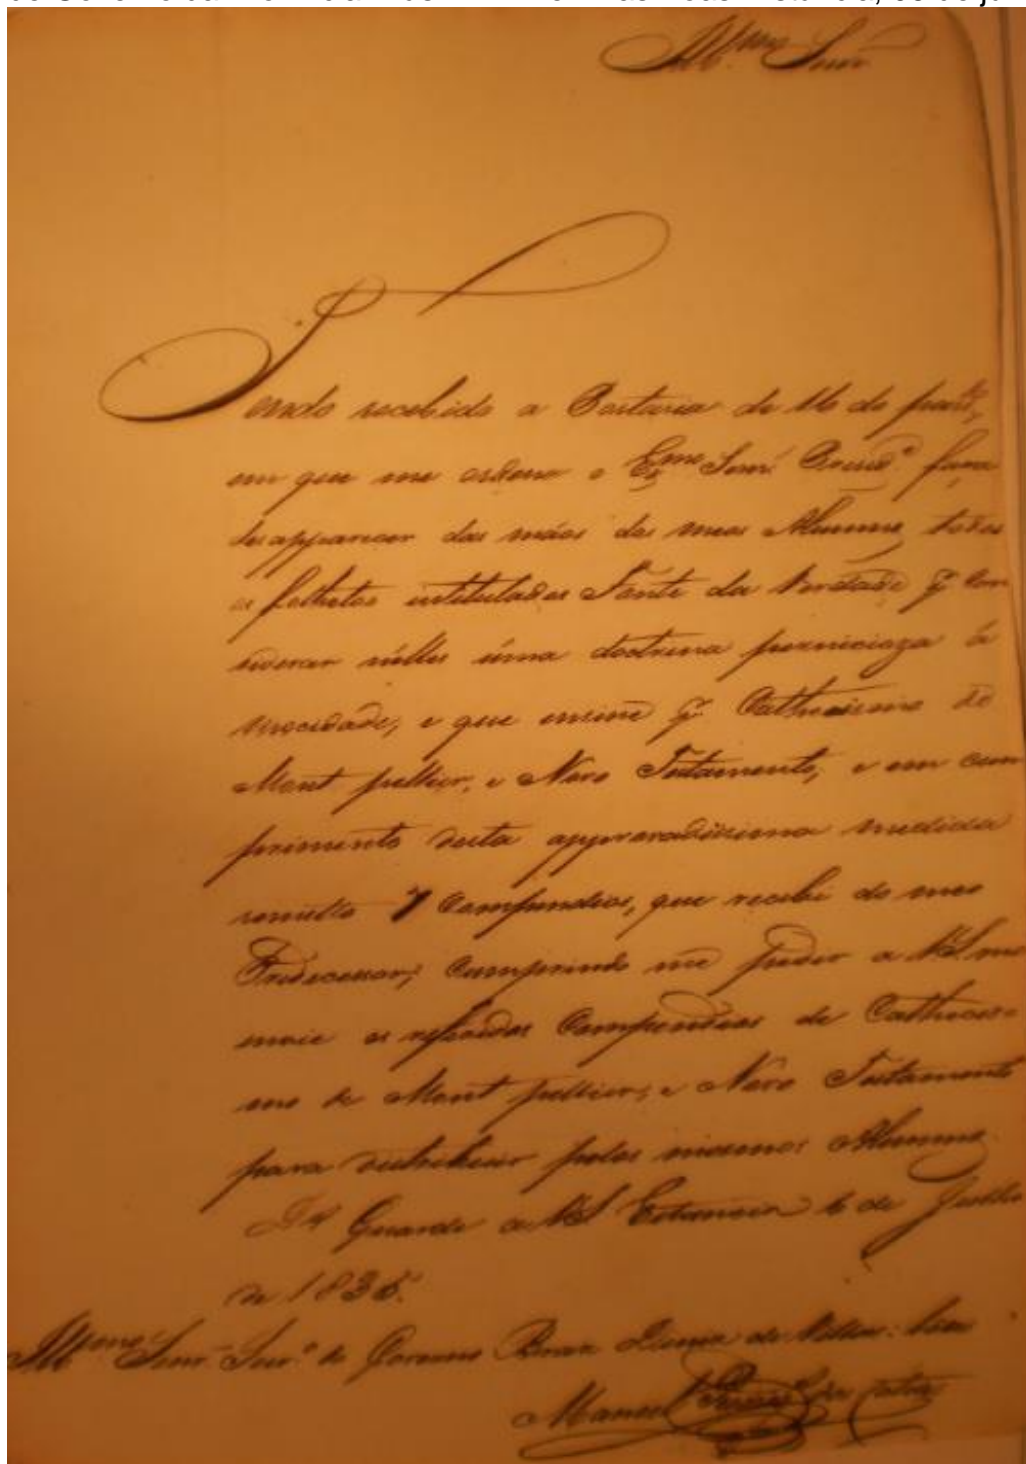 Ill.mo Senr.
Tendo recebido a Portaria de 16 do
em que me ordena o Exmo Senr. Presid.e faça
desapparecer das mãos dos meos Alumnos, todos
os folhetos intitulados Fonte da Verdade q. con
siderar nelles úma doctrina perniciaza á
mocidade, e que ensine Cathecismo de
Mont pellier, e Novo Testamento, e em cum
primento desta approvadissima medida
remetto 7 Compendios, que recebi do meo
Predecessor; Cumprindo me pedir a VS. me
envie os referidos Compendios de Catheces-
mo de Mont pellier, e Novo Testamento
para destribuir pelos mesmos Alumnos.
Ds Guarde a VS Estancia 6 de Julho
de 1835.
Ill.mo Senr. Secr.o do Governo Braz Diniz de
Manoel